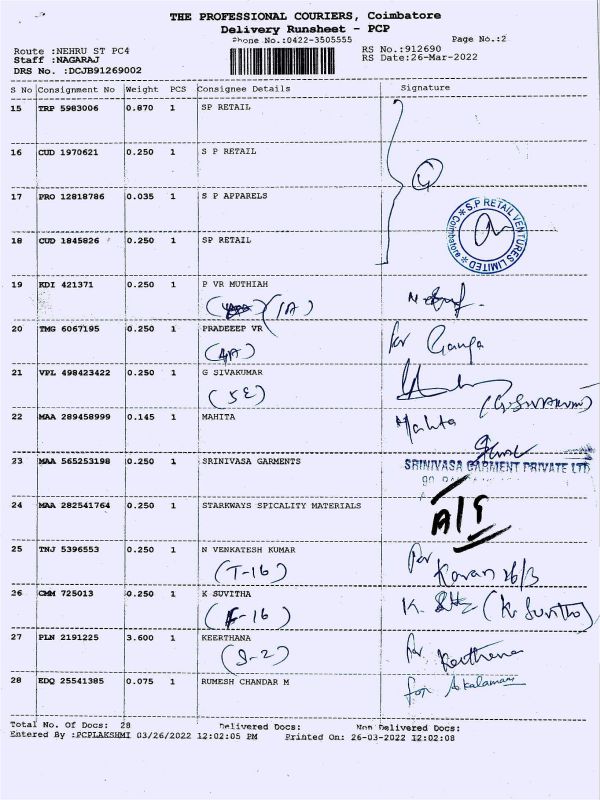 THE PROFESSIONAL COURIERS, Coimbatore
Delivery Runsheet - PCP
Phone No.:0422-3505555 Page No.:2
Route :NEHRU ST PC4 RS No.:912690
Staff :NAGARAJ RS Date:26-Mar-2022
DRS No. :DCJB91269002
S No Consignment No Weight PCS Consignee Details Signature
15 TRP 5983006 0.870 1 SP RETAIL
16 CUD 1970621 0.250 1 S P RETAIL
4
17 PRO 12818786 0.035 1 S P APPARELS
S.P RETAIL VENTURES LIMITED * Coimbatore *
18 CUD 1845826 0.250 1 SP RETAIL
19 KDI 421371 0.250 1 P VR MUTHIAH
(1A)
20 TMG 6067195 0.250 1 PRADEEEP VR
for Ganga
(4A)
21 VPL 498423422 0.250 1 G SIVAKUMAR
(5E) (G.SIVAKUMAR)
22 MAA 289458999 0.145 1 MAHITA Mahita
23 MAA 565253198 0.250 1 SRINIVASA GARMENTS SRINIVASA GARMENT PRIVATE LTD
24 MAA 282541764 0.250 1 STARKWAYS SPICALITY MATERIALS
25 TNJ 5396553 0.250 1 N VENKATESH KUMAR
(T-16) for Karan 26/3
26 CMM 725013 0.250 1 K SUVITHA
(F-16) K. (K. Suvitha)
27 PLN 2191225 3.600 1 KEERTHANA
(S-2) for Keerthana
28 EDQ 25541385 0.075 1 RUMESH CHANDAR M for
Total No. Of Docs: 28 Delivered Docs: Non Delivered Docs:
Entered By :PCPLAKSHMI 03/26/2022 12:02:05 PM Printed On: 26-03-2022 12:02:08